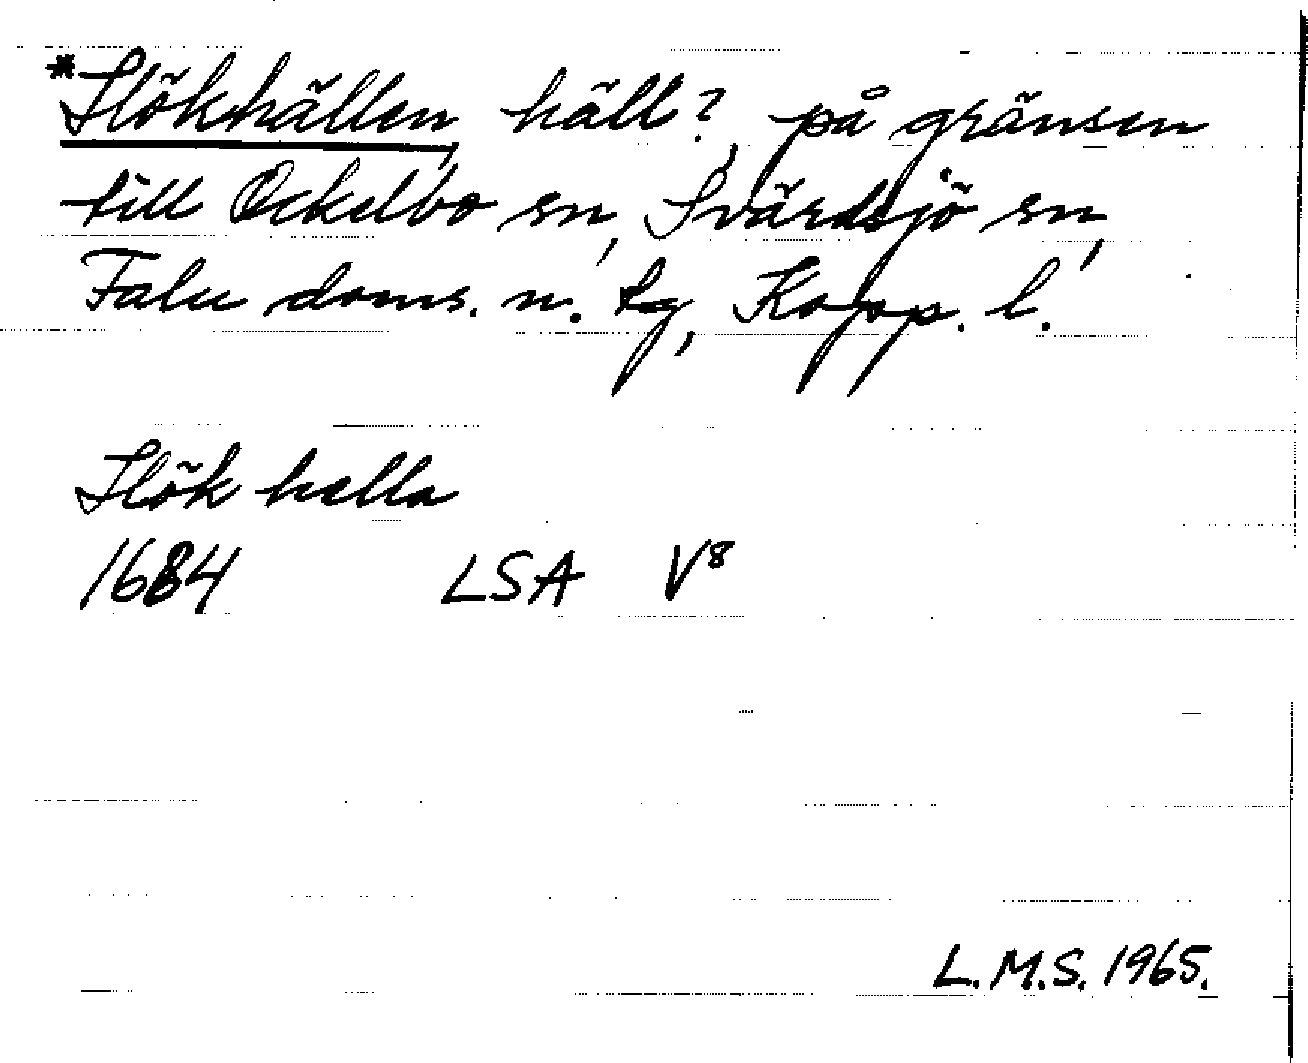 *Slökhällen, häll?, på gränsen
till Ockelbo sn, Svärdsjö sn,
Falu doms. n. tg, Kopp. l.
Slök hella
1684 LSA V⁸
L.M.S. 1965.